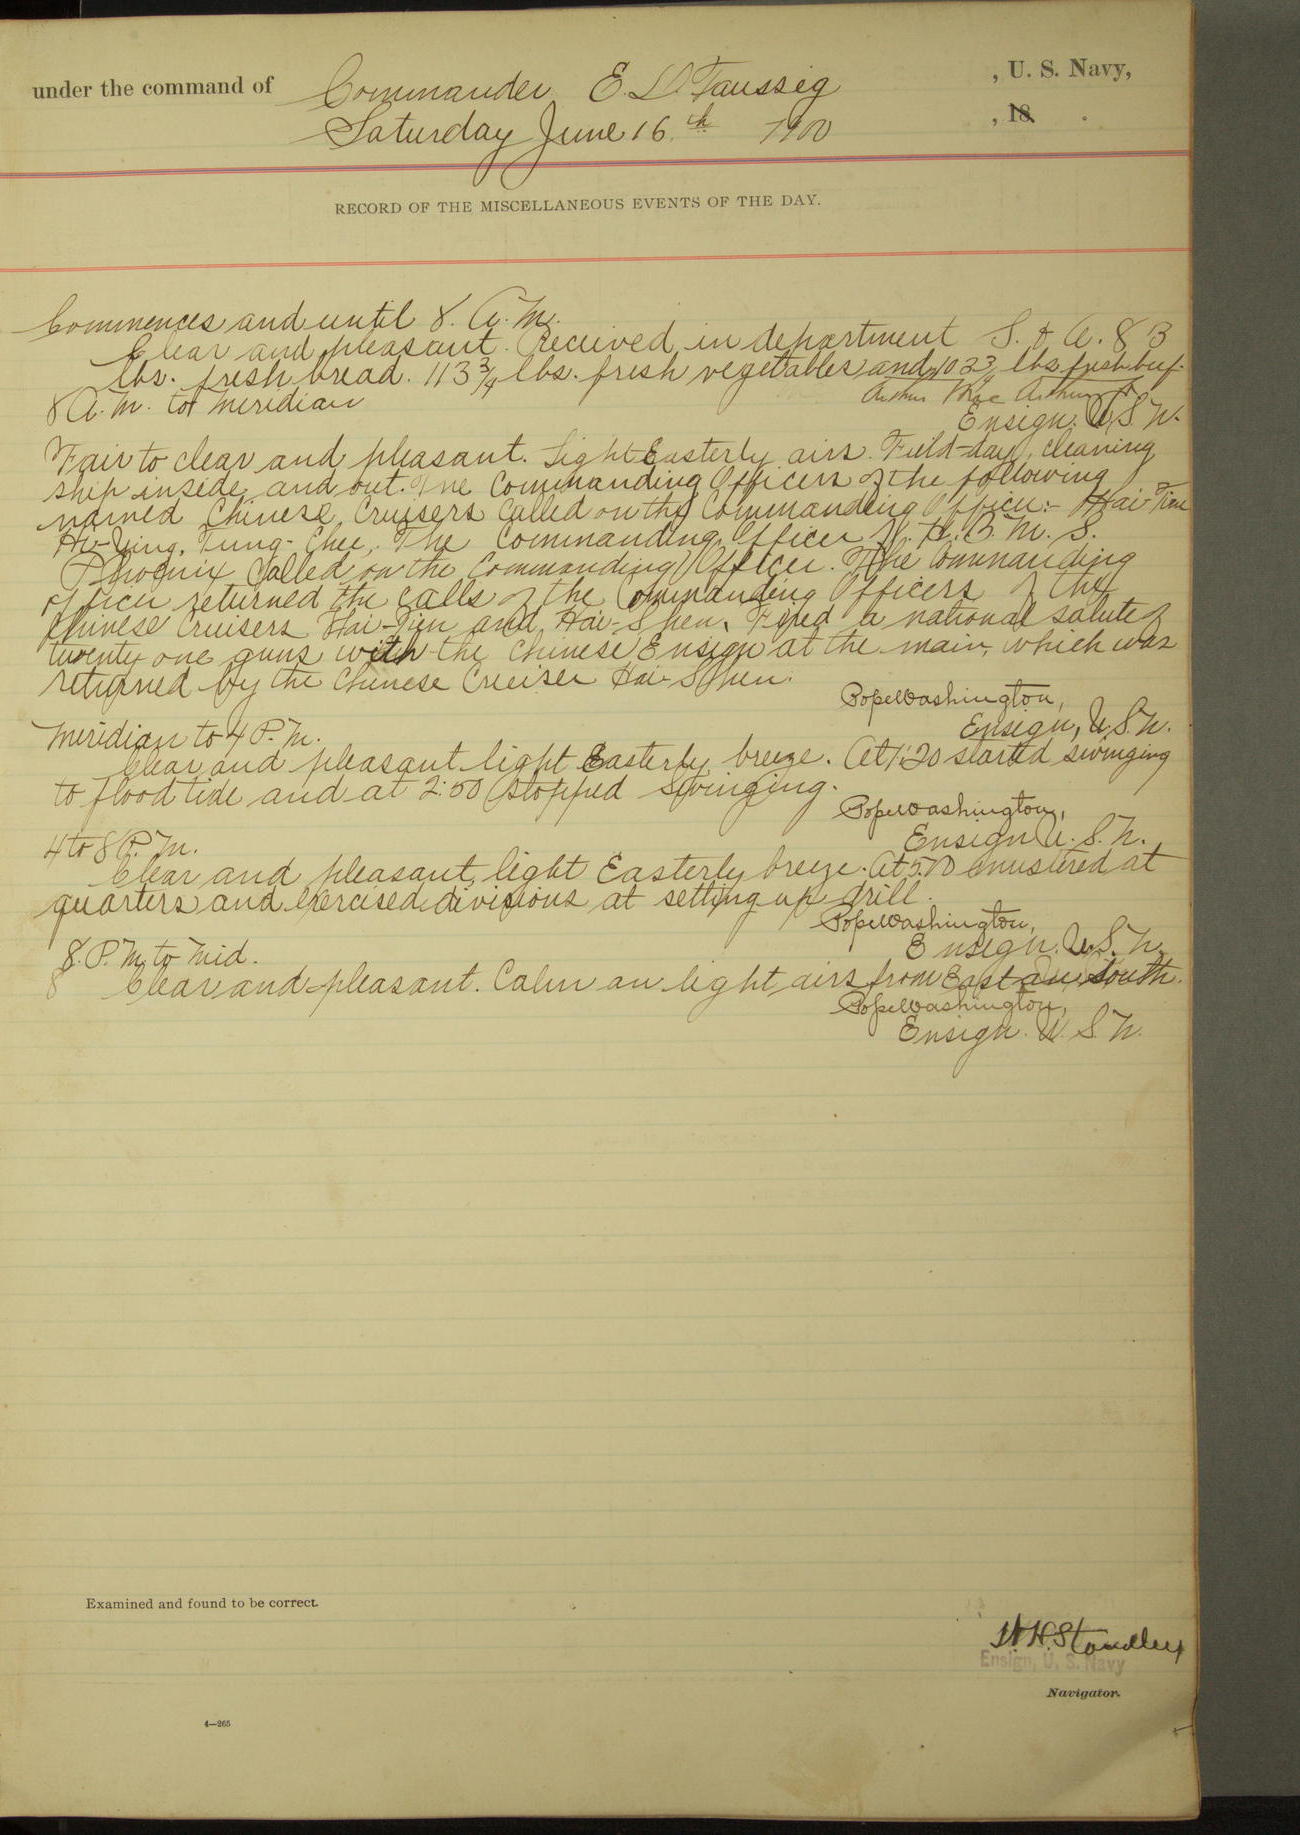 under the command of Commander E. D. Taussig , U. S. Navy,
Saturday June 16th 1900 , 18 .
RECORD OF THE MISCELLANEOUS EVENTS OF THE DAY.
Commences and until 8. A. M.
Clear and pleasant. Received in department S. & A. 83
lbs. fresh bread. 113 3/4 lbs. fresh vegetables and 102 lbs fresh beef.
Arthur Mac Arthur Jr
8 A. M. to Meridian
Ensign. U. S. N.
Fair to clear and pleasant. Light Easterly airs. Field-day, cleaning
ship inside and out. The Commanding Officers of the following
named Chinese Cruisers called on the Commanding Officer:- Hai-Tien
Fei-Ying, Tung-Chee. The Commanding Officer of H. B. M. S.
Phoenix called on the Commanding Officer. The Commanding
officer returned the calls of the Commanding Officers of the
Chinese Cruisers Hai-Tien and Hai-Shen. Fired a national salute of
twenty one guns with the Chinese Ensign at the main, which was
returned by the Chinese Cruiser Hai-Shen.
Pope Washington,
Ensign, U. S. N.
Meridian to 4 P. M.
Clear and pleasant light Easterly breeze. At 1:20 started swinging
to flood tide and at 2:50 stopped swinging.
Pope Washington,
Ensign U. S. N.
4 to 8 P. M.
Clear and pleasant, light Easterly breeze. At 5:10 mustered at
quarters and exercised divisions at setting up drill.
Pope Washington,
Ensign. U. S. N.
8. P. M. to Mid.
Clear and pleasant. Calm an light airs from East an South.
Pope Washington,
Ensign. U. S. N.
Examined and found to be correct.
W H Standley
Ensign, U. S. Navy
Navigator.
4—265